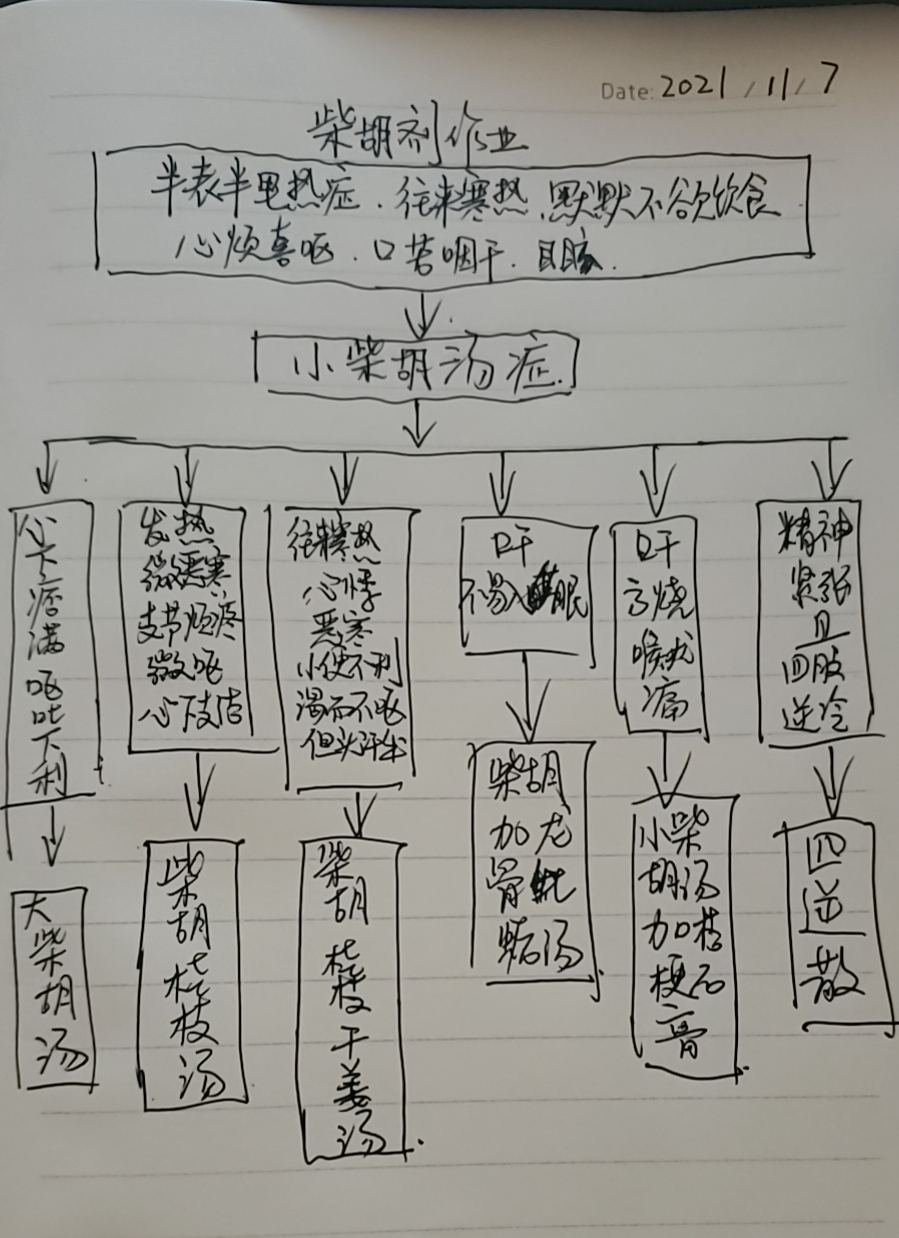 Date: 2021/11/7
柴胡剂作业
半表半里热症.往来寒热.默默不欲饮食
心烦喜呕.口苦咽干.目眩.
小柴胡汤症.
心下痞满呕吐下利
发热
微恶寒
支节烦疼
微呕
心下支结
往来寒热
心悸
恶寒
小便不利
渴而不呕
但头汗出
口干
不易入眠
口干
高烧
喉咙
痛
精神
紧张
且
四肢
逆冷
大柴胡汤
柴胡桂枝汤
柴胡桂枝干姜汤
柴胡
加龙
骨牡
蛎汤
小柴
胡汤
加桔
梗石
膏
四逆散